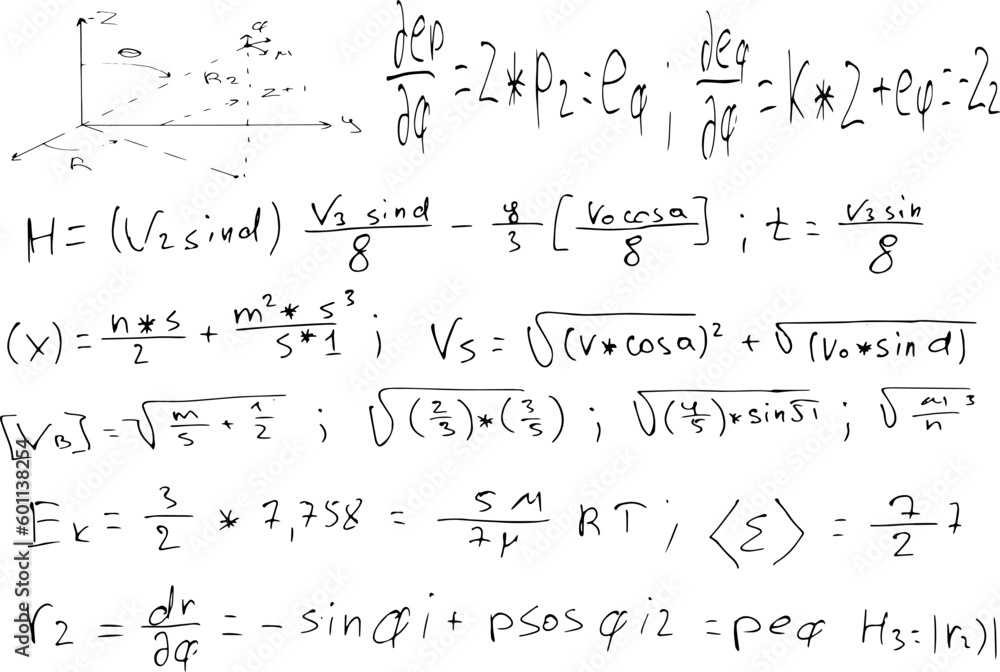 -Z
φ
θ
μ
R2
Z+1
y
R
∂ep/∂φ = 2*p2 : eφ ; ∂eφ/∂φ = K*2+eφ = -22
H = (V2 sind) V3 sind/8 - 8/3 [V0 cosa/8] ; t = V3 sin/8
(x) = n*s/2 + m²* s³/s*1 ; Vs = √(V*cosa)² + √(V0*sin d)
[VB] = √m/s + 1/2 ; √(2/3)*(3/5) ; √(4/5)*sin√1 ; √m1 3/n
Eк = 3/2 * 7,758 = 5M/7μ RT ; ⟨Σ⟩ = 7/2 7
r2 = dr/∂φ = - sinφi + psosφi2 = peφ H3=|r2)|
Adobe Stock | #601138254
Adobe Stock